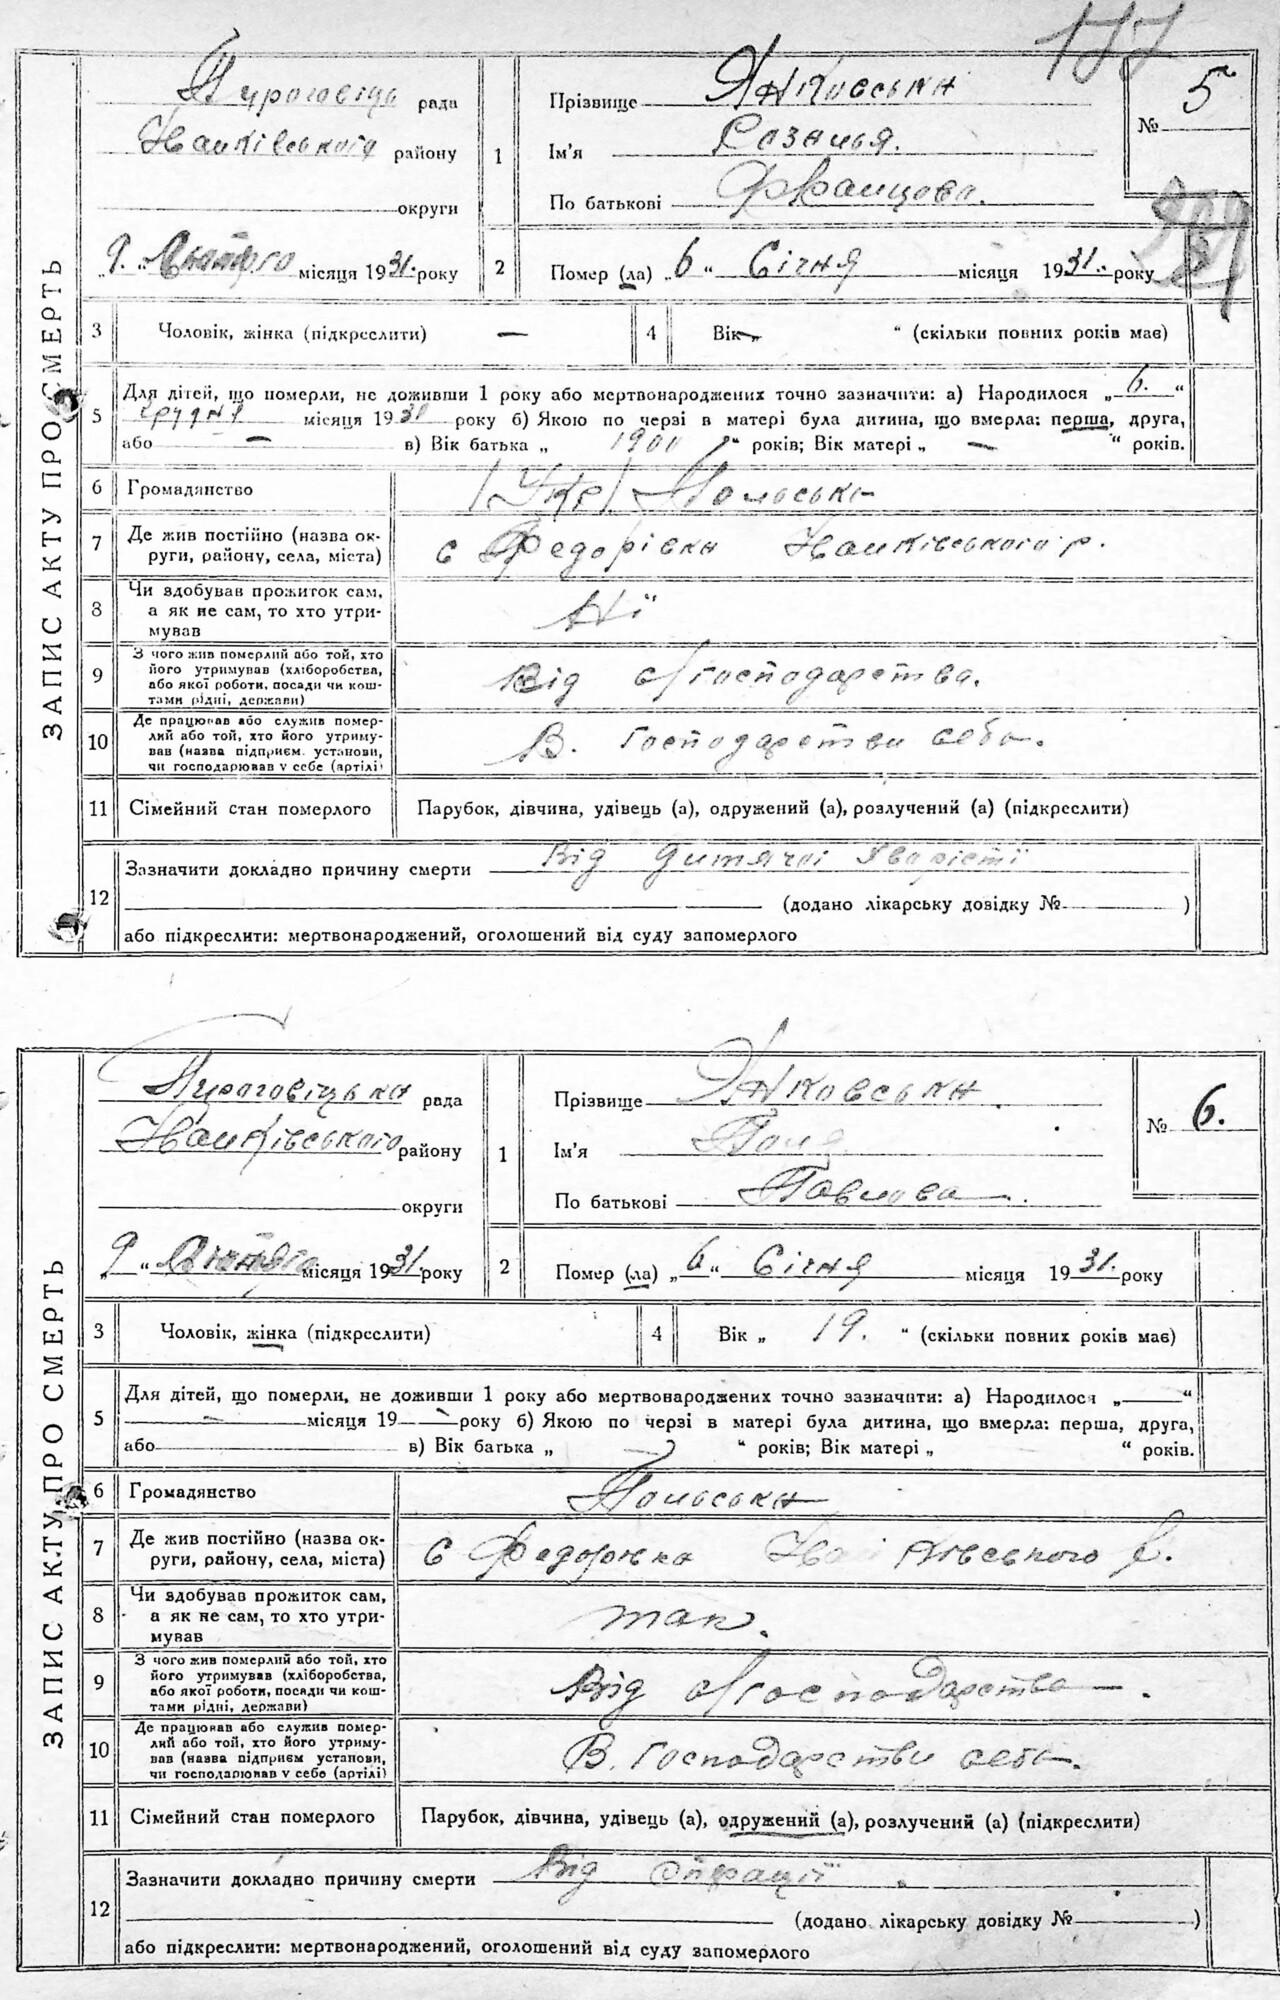 177
ЗАПИС АКТУ ПРО СМЕРТЬ
рада
Іванківського району
округи
„9.“ Лютого місяця 1931. року
1
Прізвище Янковська
Ім'я Розалья.
По батькові Францова.
№ 5
2
Помер (ла) „6“ Січня місяця 1931. року
3 Чоловік, жінка (підкреслити) —
4 Вік „—“ (скільки повних років має)
5 Для дітей, що померли, не доживши 1 року або мертвонароджених точно зазначити: а) Народилося „6.“
грудня місяця 1930 року б) Якою по черзі в матері була дитина, що вмерла: перша, друга,
або — в) Вік батька „1900“ років; Вік матері „—“ років.
6 Громадянство /Укр/ Польська
7 Де жив постійно (назва ок-
руги, району, села, міста) с Федорівка Іванківського р.
8 Чи здобував прожиток сам,
а як не сам, то хто утри-
мував Ні
9 З чого жив померлий або той, хто
його утримував (хліборобства,
або якої роботи, посади чи кош-
тами рідні, держави) Від с/господарства.
10 Де працював або служив помер-
лий або той, хто його утриму-
вав (назва підприєм. установи,
чи господарював у себе (артілі) В. Господарстви себе.
11 Сімейний стан померлого Парубок, дівчина, удівець (а), одружений (а), розлучений (а) (підкреслити)
12 Зазначити докладно причину смерти Від дитячої
(додано лікарську довідку № )
або підкреслити: мертвонароджений, оголошений від суду запомерлого
ЗАПИС АКТУ ПРО СМЕРТЬ
Пироговіцька рада
Іванківського району
округи
„9“ Лютого місяця 1931. року
1
Прізвище Янковська.
Ім'я
По батькові Павлова.
№ 6.
2
Помер (ла) „6“ Січня місяця 1931. року
3 Чоловік, жінка (підкреслити)
4 Вік „19.“ (скільки повних років має)
5 Для дітей, що померли, не доживши 1 року або мертвонароджених точно зазначити: а) Народилося „ “
— місяця 19 — року б) Якою по черзі в матері була дитина, що вмерла: перша, друга,
або в) Вік батька „ “ років; Вік матері „ “ років.
6 Громадянство Польська
7 Де жив постійно (назва ок-
руги, району, села, міста) с Федорівка Іванківського р.
8 Чи здобував прожиток сам,
а як не сам, то хто утри-
мував так.
9 З чого жив померлий або той, хто
його утримував (хліборобства,
або якої роботи, посади чи кош-
тами рідні, держави) Від с/господарства.
10 Де працював або служив помер-
лий або той, хто його утриму-
вав (назва підприєм установи,
чи господарював у себе (артілі) В. Господарстви себе.
11 Сімейний стан померлого Парубок, дівчина, удівець (а), одружений (а), розлучений (а) (підкреслити)
12 Зазначити докладно причину смерти Від
(додано лікарську довідку № )
або підкреслити: мертвонароджений, оголошений від суду запомерлого